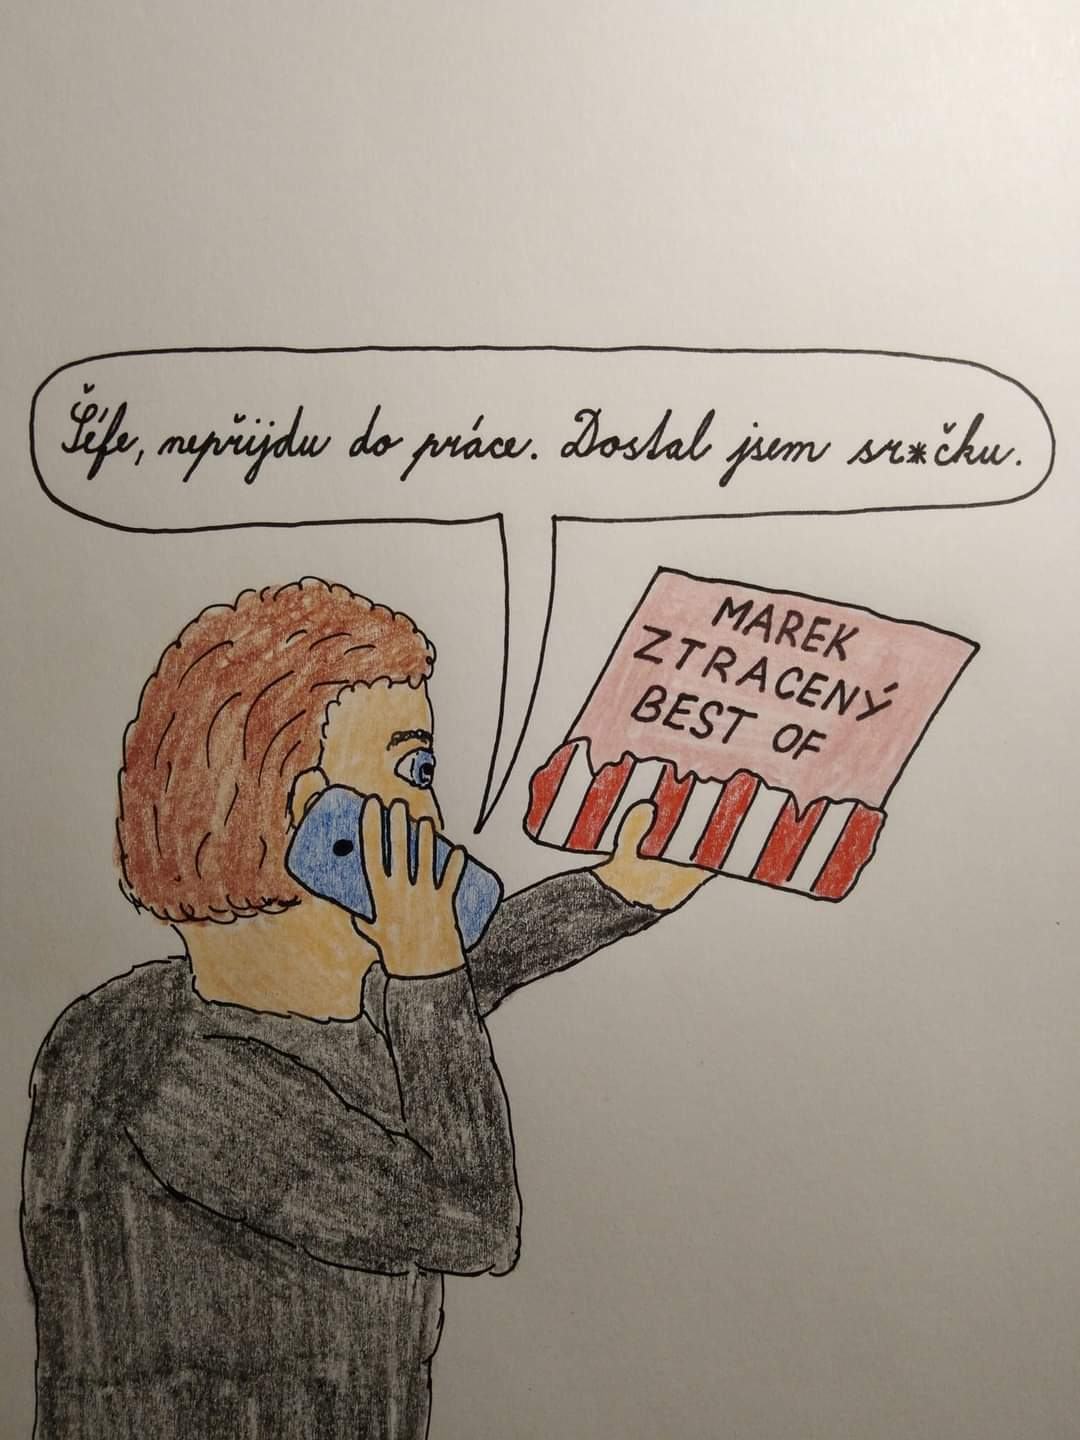 Šéfe, nepřijdu do práce. Dostal jsem sr*čku.
MAREK
ZTRACENÝ
BEST OF